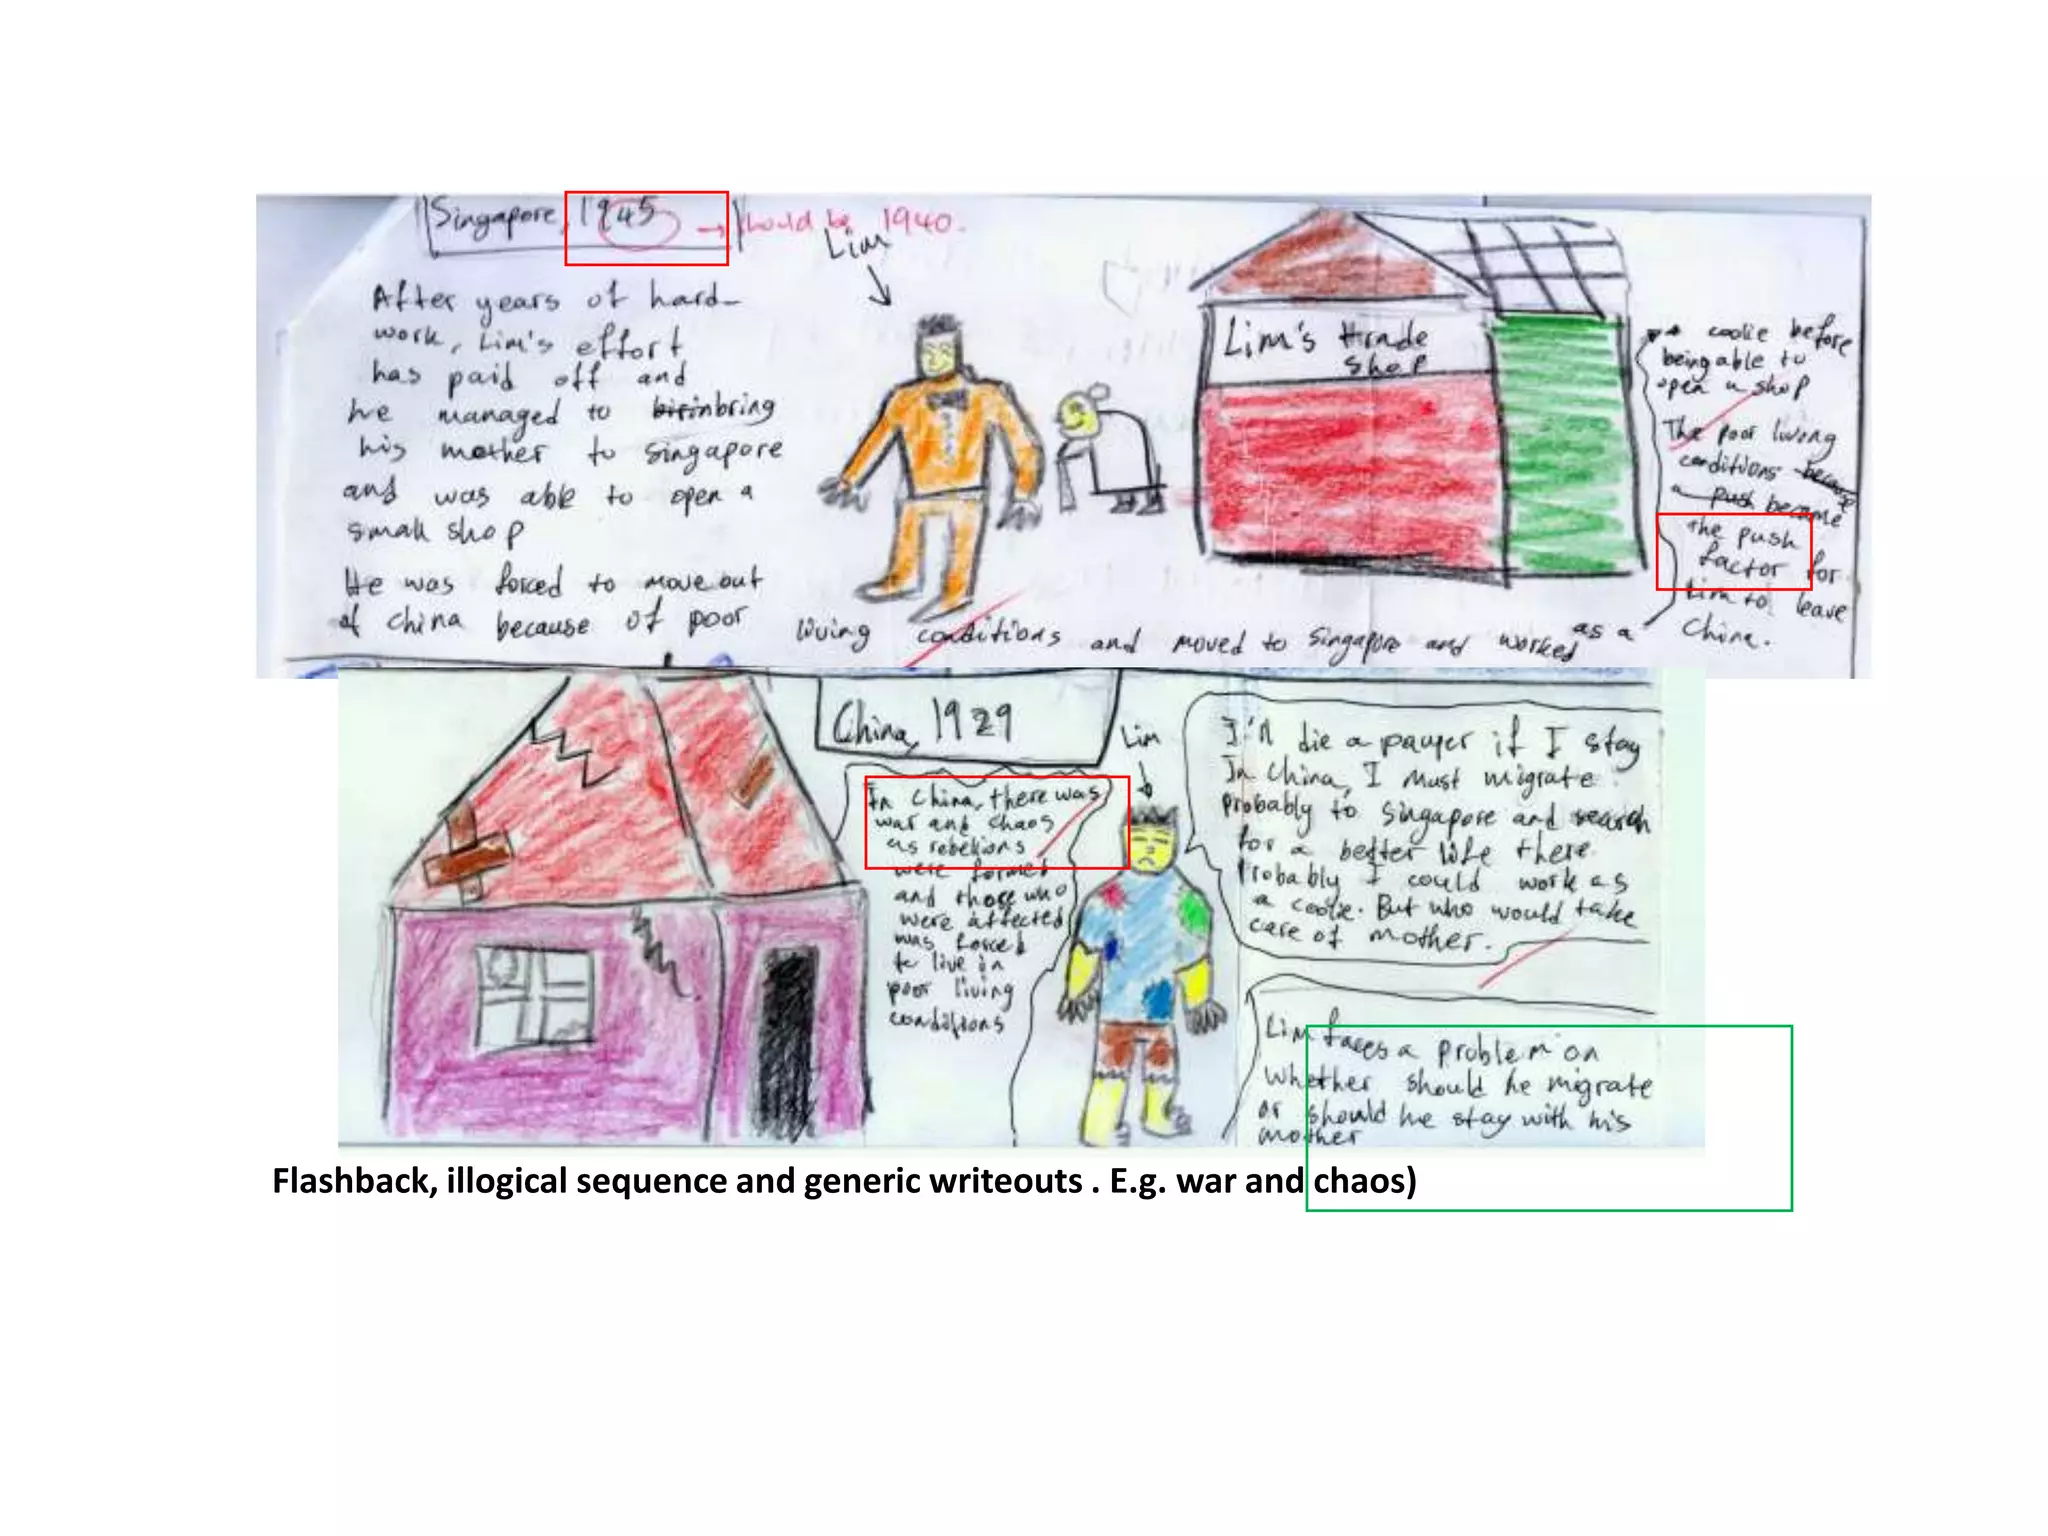 Singapore, 1945 → should be 1940.
Lim
After years of hard-
work, Lim's effort
has paid off and
he managed to bring
his mother to singapore
and was able to open a
small shop
He was forced to move out
of china because of poor
living conditions and moved to singapore and worked as a
Lim's trade
shop
coolie before
being able to
open a shop
The poor living
conditions because
a push became
the push
factor for
Lim to leave
China.
China, 1929
In China, there was
war and chaos
as rebelions
were formed
and those who
were affected
was forced
to live in
poor living
conditions
Lim
I'll die a pauper if I stay
In China, I must migrate
probably to singapore and search
for a better life there.
Probably I could work as
a coolie. But who would take
care of mother.
Lim faces a problem on
whether should he migrate
or should he stay with his
mother
Flashback, illogical sequence and generic writeouts . E.g. war and chaos)